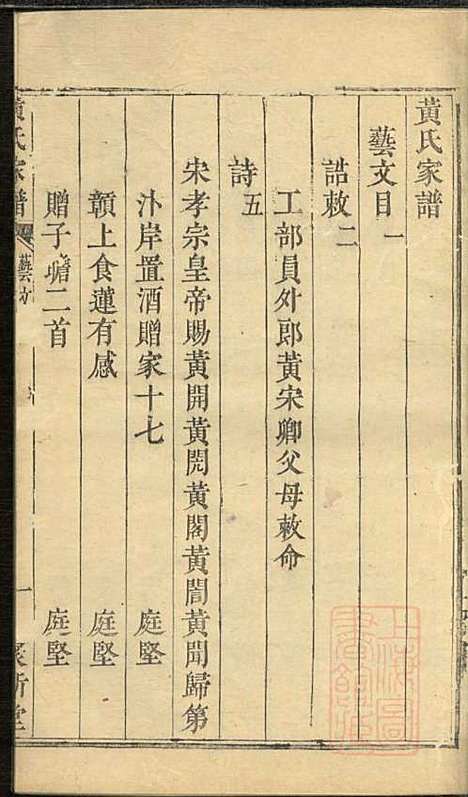 黃氏家譜
藝文目一
誥敕二
工部員外郎黃宋卿父母敕命
詩五
宋孝宗皇帝賜黃開黃閌黃閣黃誾黃聞歸第
汴岸置酒贈家十七　庭堅
顛上食蓮有感　庭堅
贈子塘二首　庭堅
黃氏家譜　藝文　一　聚斯堂
上海圖書館藏